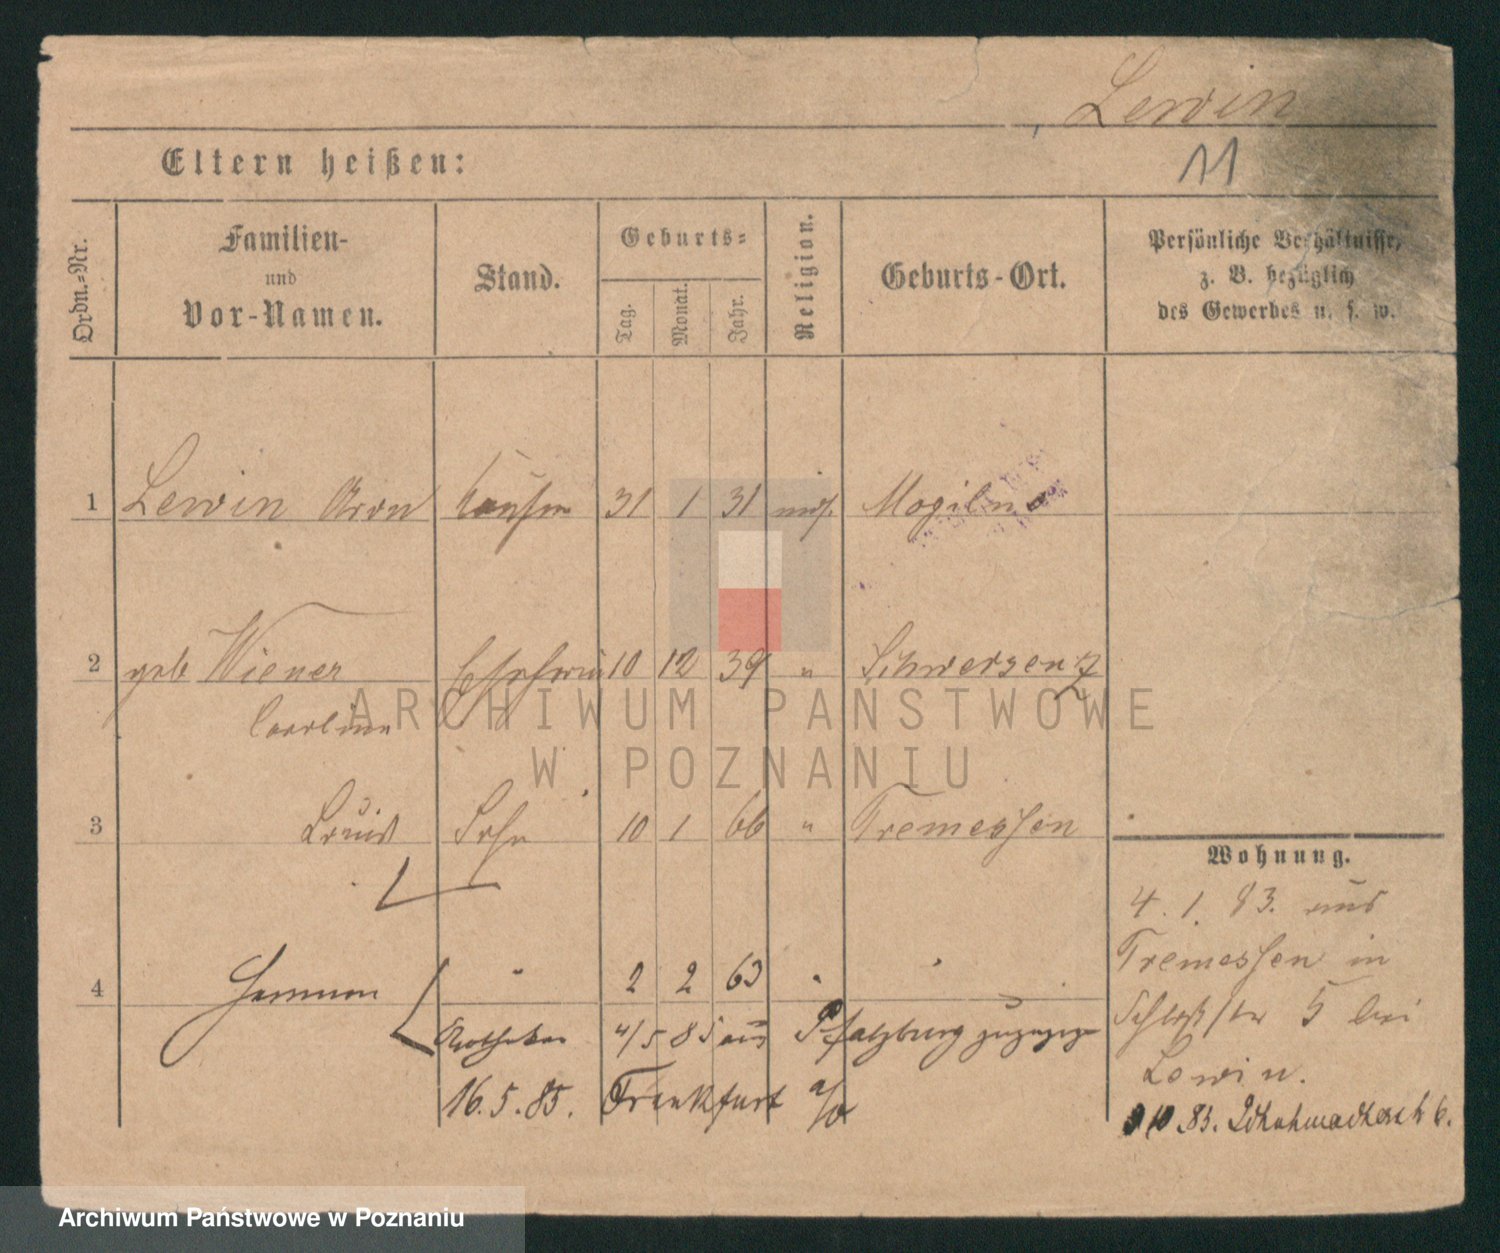 Lewin
11
Eltern heißen:
Ordn.-Nr.
Familien-
und
Vor-Namen.
Stand.
Geburts-
Tag.
Monat.
Jahr.
Religion.
Geburts-Ort.
Persönliche Verhältnisse,
z. B. bezüglich
des Gewerbes u. s. w.
1 Lewin Aron Kaufm 31 1 31 mos. Mogilno
2 geb Wiener Ehefrau 10 12 39 " Schwersenz
Caroline
3 Louis Sohn 10 1 66 " Tremessen
Wohnung.
4. 1. 83. aus
Tremessen in
4 Herman " 2 2 63 " "
Schloßstr 5 bei
Apotheker 4/5 85 aus Pfalzburg
Lewin.
16. 5. 85. Frankfurt a/O
10 83. 6.
ARCHIWUM PAŃSTWOWE
W POZNANIU
Archiwum Państwowe w Poznaniu